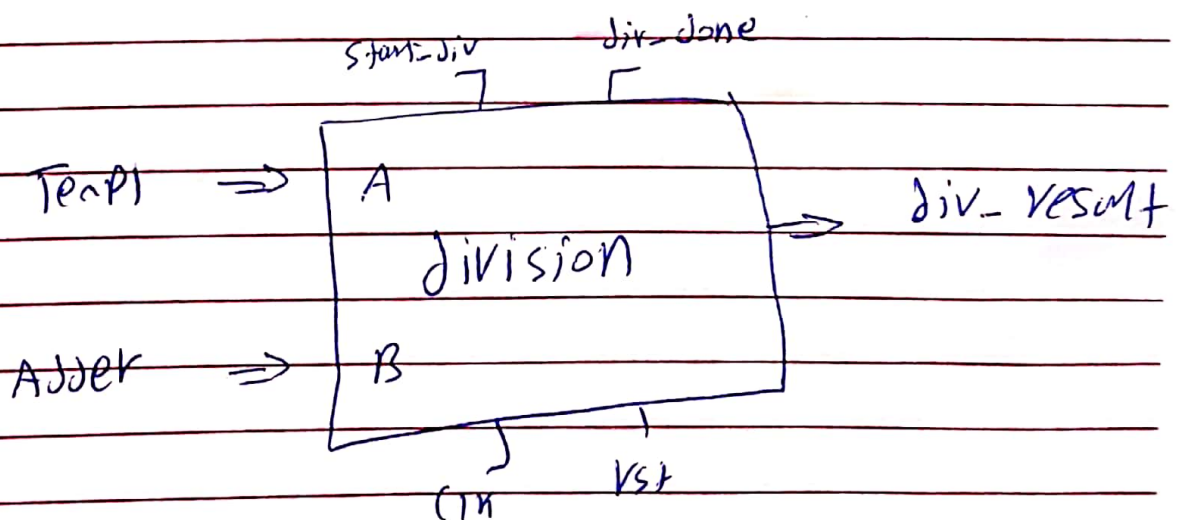 start-div div-done
Temp1 A
division
div- result
Adder B
Clk rst